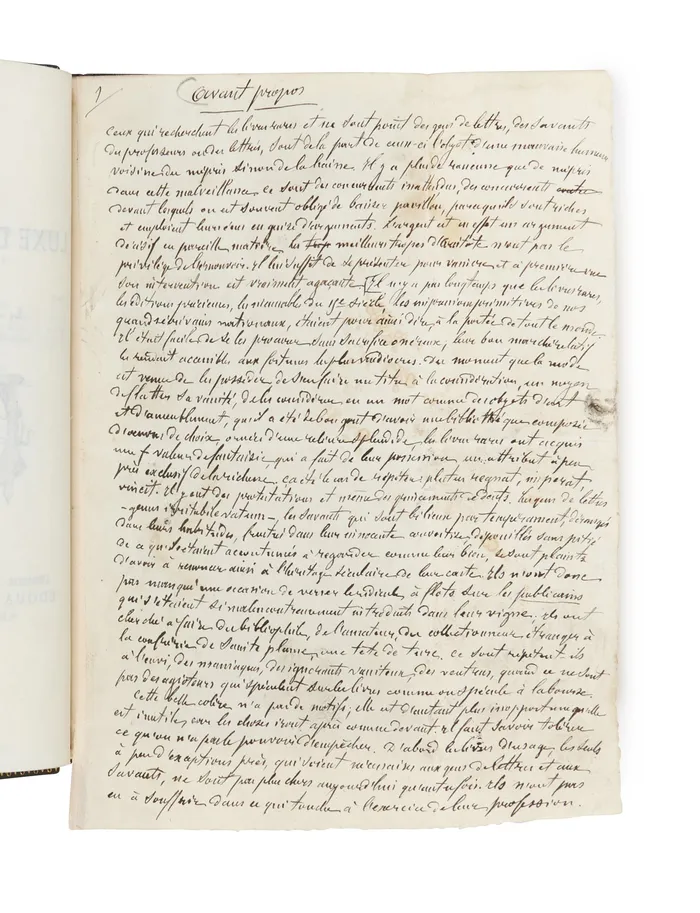 1
avant propos
Ceux qui recherchent les livres rares et ne sont point des gens de lettres, des savants
du professeurs ou des lettrés, sont de la part de ceux-ci l'objet d'une mauvaise humeur
voisine du mépris sinon de la haine. Il y a plus de rancune que de mépris
dans cette malveillance. ce sont des concurrents inattendus, des concurrents
devant lesquels on est souvent obligé de baisser pavillon, parcequ'ils sont riches
et emploient leurs écus en guise d'arguments. L'argent est en effet un argument
décisif en pareille matière les meilleurs tropes d'Aristote n'ont pas le
privilège de l'émouvoir. Il lui suffit de se présenter pour vaincre et à première vue
son intervention est vraiment agaçante. Il n'y a pas longtemps que les livres rares,
les éditions précieuses, les incunables du 15e siècle, les impressions primitives de nos
grands écrivains nationaux, étaient pour ainsi dire, à la portée de tout le monde.
Il était facile de se les procurer sans sacrifice onéreux, leur bon marché relatif
les rendait accessibles aux fortunes les plus médiocres. Du moment que la mode
est venue de les posséder, de s'en faire un titre à la considération, un moyen
de flatter sa vanité, de les considérer en un mot comme des objets d'art
et d'ameublement, qu'il a été de bon goût d'avoir une bibliothèque composée
d'œuvres de choix, ornées d'une reliure splendide, les livres rares ont acquis
une valeur de fantaisie, qui a fait de leur possession un attribut à peu
près exclusif de la richesse. Ca été le cas de répéter plutus regnat, imperat,
vincit. Il y eut des protestations et même des grincements de dents. Les gens de lettres
- genus irritabile vatum - les savants qui sont bilieux par tempérament, dérangés
dans leurs habitudes, frustrés dans leur innocente convoitise, dépouillés sans pitié
de ce qu'ils étaient accoutumés à regarder comme leur bien, se sont plaints
d'avoir à renoncer ainsi à l'héritage séculaire de leur caste. Ils n'ont donc
pas manqué une occasion de verser le ridicule à flots sur les publicains
qui s'étaient si malencontreusement introduits dans leur vigne. Ils ont
cherché à faire du bibliophile, de l'amateur, du collectionneur étranger à
la confrérie de Sainte plume, une tête de turc. Ce sont répètent-ils
à l'envi, des maniaques, des ignorants vaniteux, des ventrus, quand ce ne sont
pas des agioteurs qui spéculent sur les livres comme on spécule à la bourse.
Cette belle colère n'a pas de motifs; elle est d'autant plus inopportune qu'elle
est inutile, car les choses iront après comme devant. Il faut savoir tolérer
ce qu'on n'a pas le pouvoir d'empêcher. D'abord les livres d'usage, les seuls
à peu d'exceptions près, qui soient nécessaires aux gens de lettres et aux
savants, ne sont pas plus chers aujourd'hui qu'autrefois. Ils n'ont pas
eu à souffrir dans ce qui touche à l'exercice de leur profession.